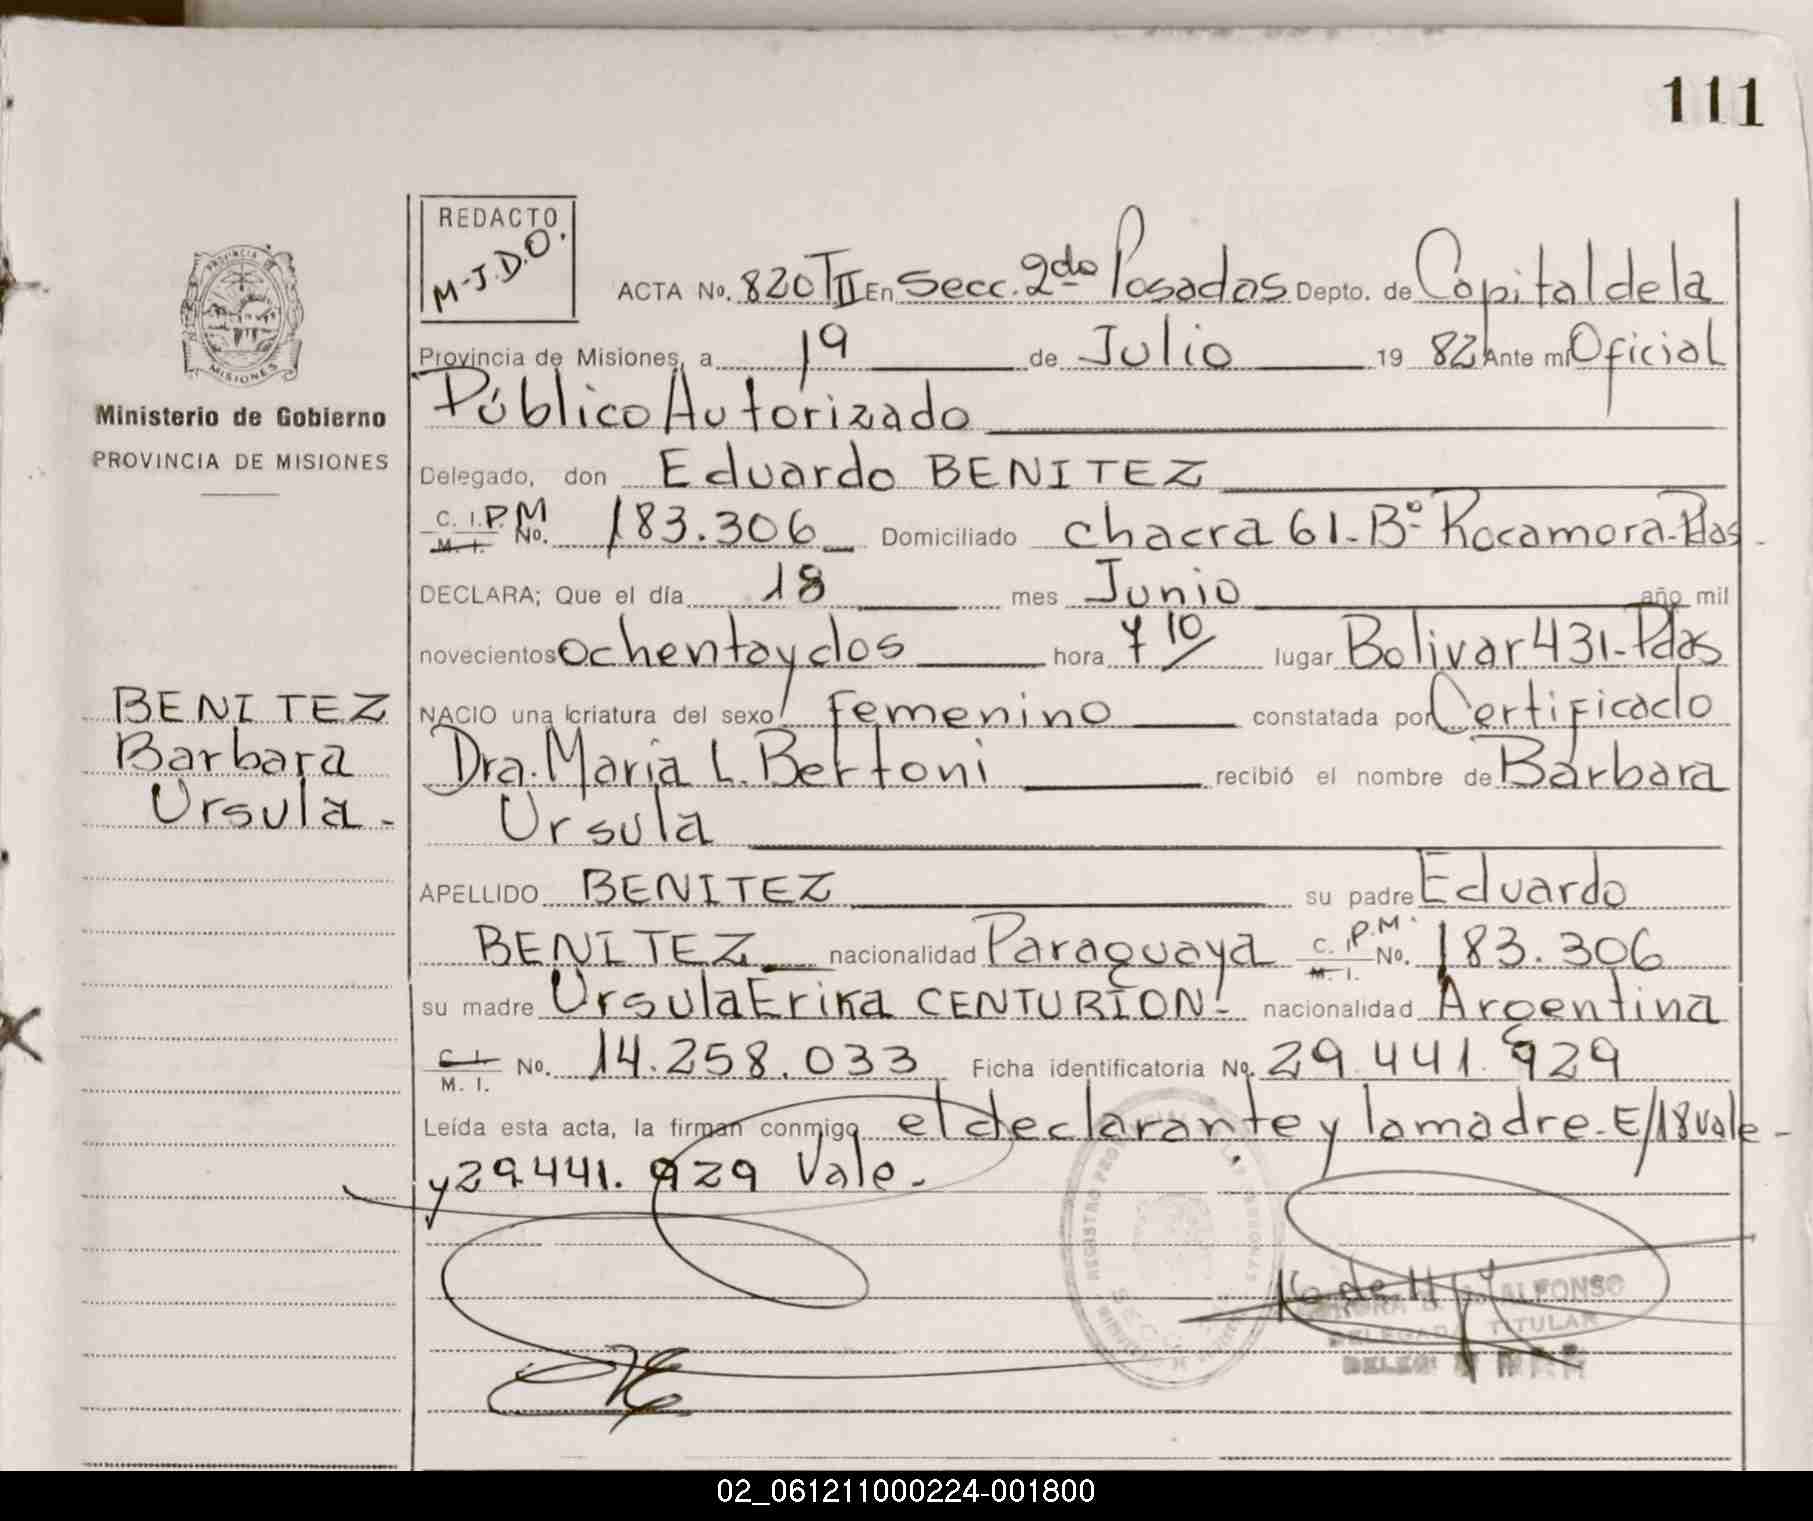 111
REDACTO
M-J.D.O.
PROVINCIA DE
MISIONES
Ministerio de Gobierno
PROVINCIA DE MISIONES
ACTA No. 820 TII En Secc. 2do Posadas Depto. de Capital de la
Provincia de Misiones, a 19 de Julio 19 82 Ante mi Oficial
Público Autorizado
Delegado, don Eduardo BENITEZ
C. I. P. M
M. I. No. 183.306 Domiciliado chacra 61-Bº Rocamora-Pdas-
DECLARA; Que el día 18 mes Junio año mil
novecientos ochenta y dos hora 7 10 lugar Bolivar 431-Pdas
NACIO una criatura del sexo femenino constatada por Certificado
Dra. Maria L. Bertoni recibió el nombre de Bárbara
Ursula
APELLIDO BENITEZ su padre Eduardo
BENITEZ nacionalidad Paraguaya C. I. P.M. M. I. No. 183.306
su madre Ursula Erika CENTURION.- nacionalidad Argentina
C. I.
M. I. No. 14.258.033 Ficha identificatoria No. 29.441.929
Leída esta acta, la firman conmigo el declarante y la madre-E/18 vale-
y 29.441.929 Vale.-
BENITEZ
Barbara
Ursula-
ALFONSO
DELEGADA TITULAR
02_061211000224-001800